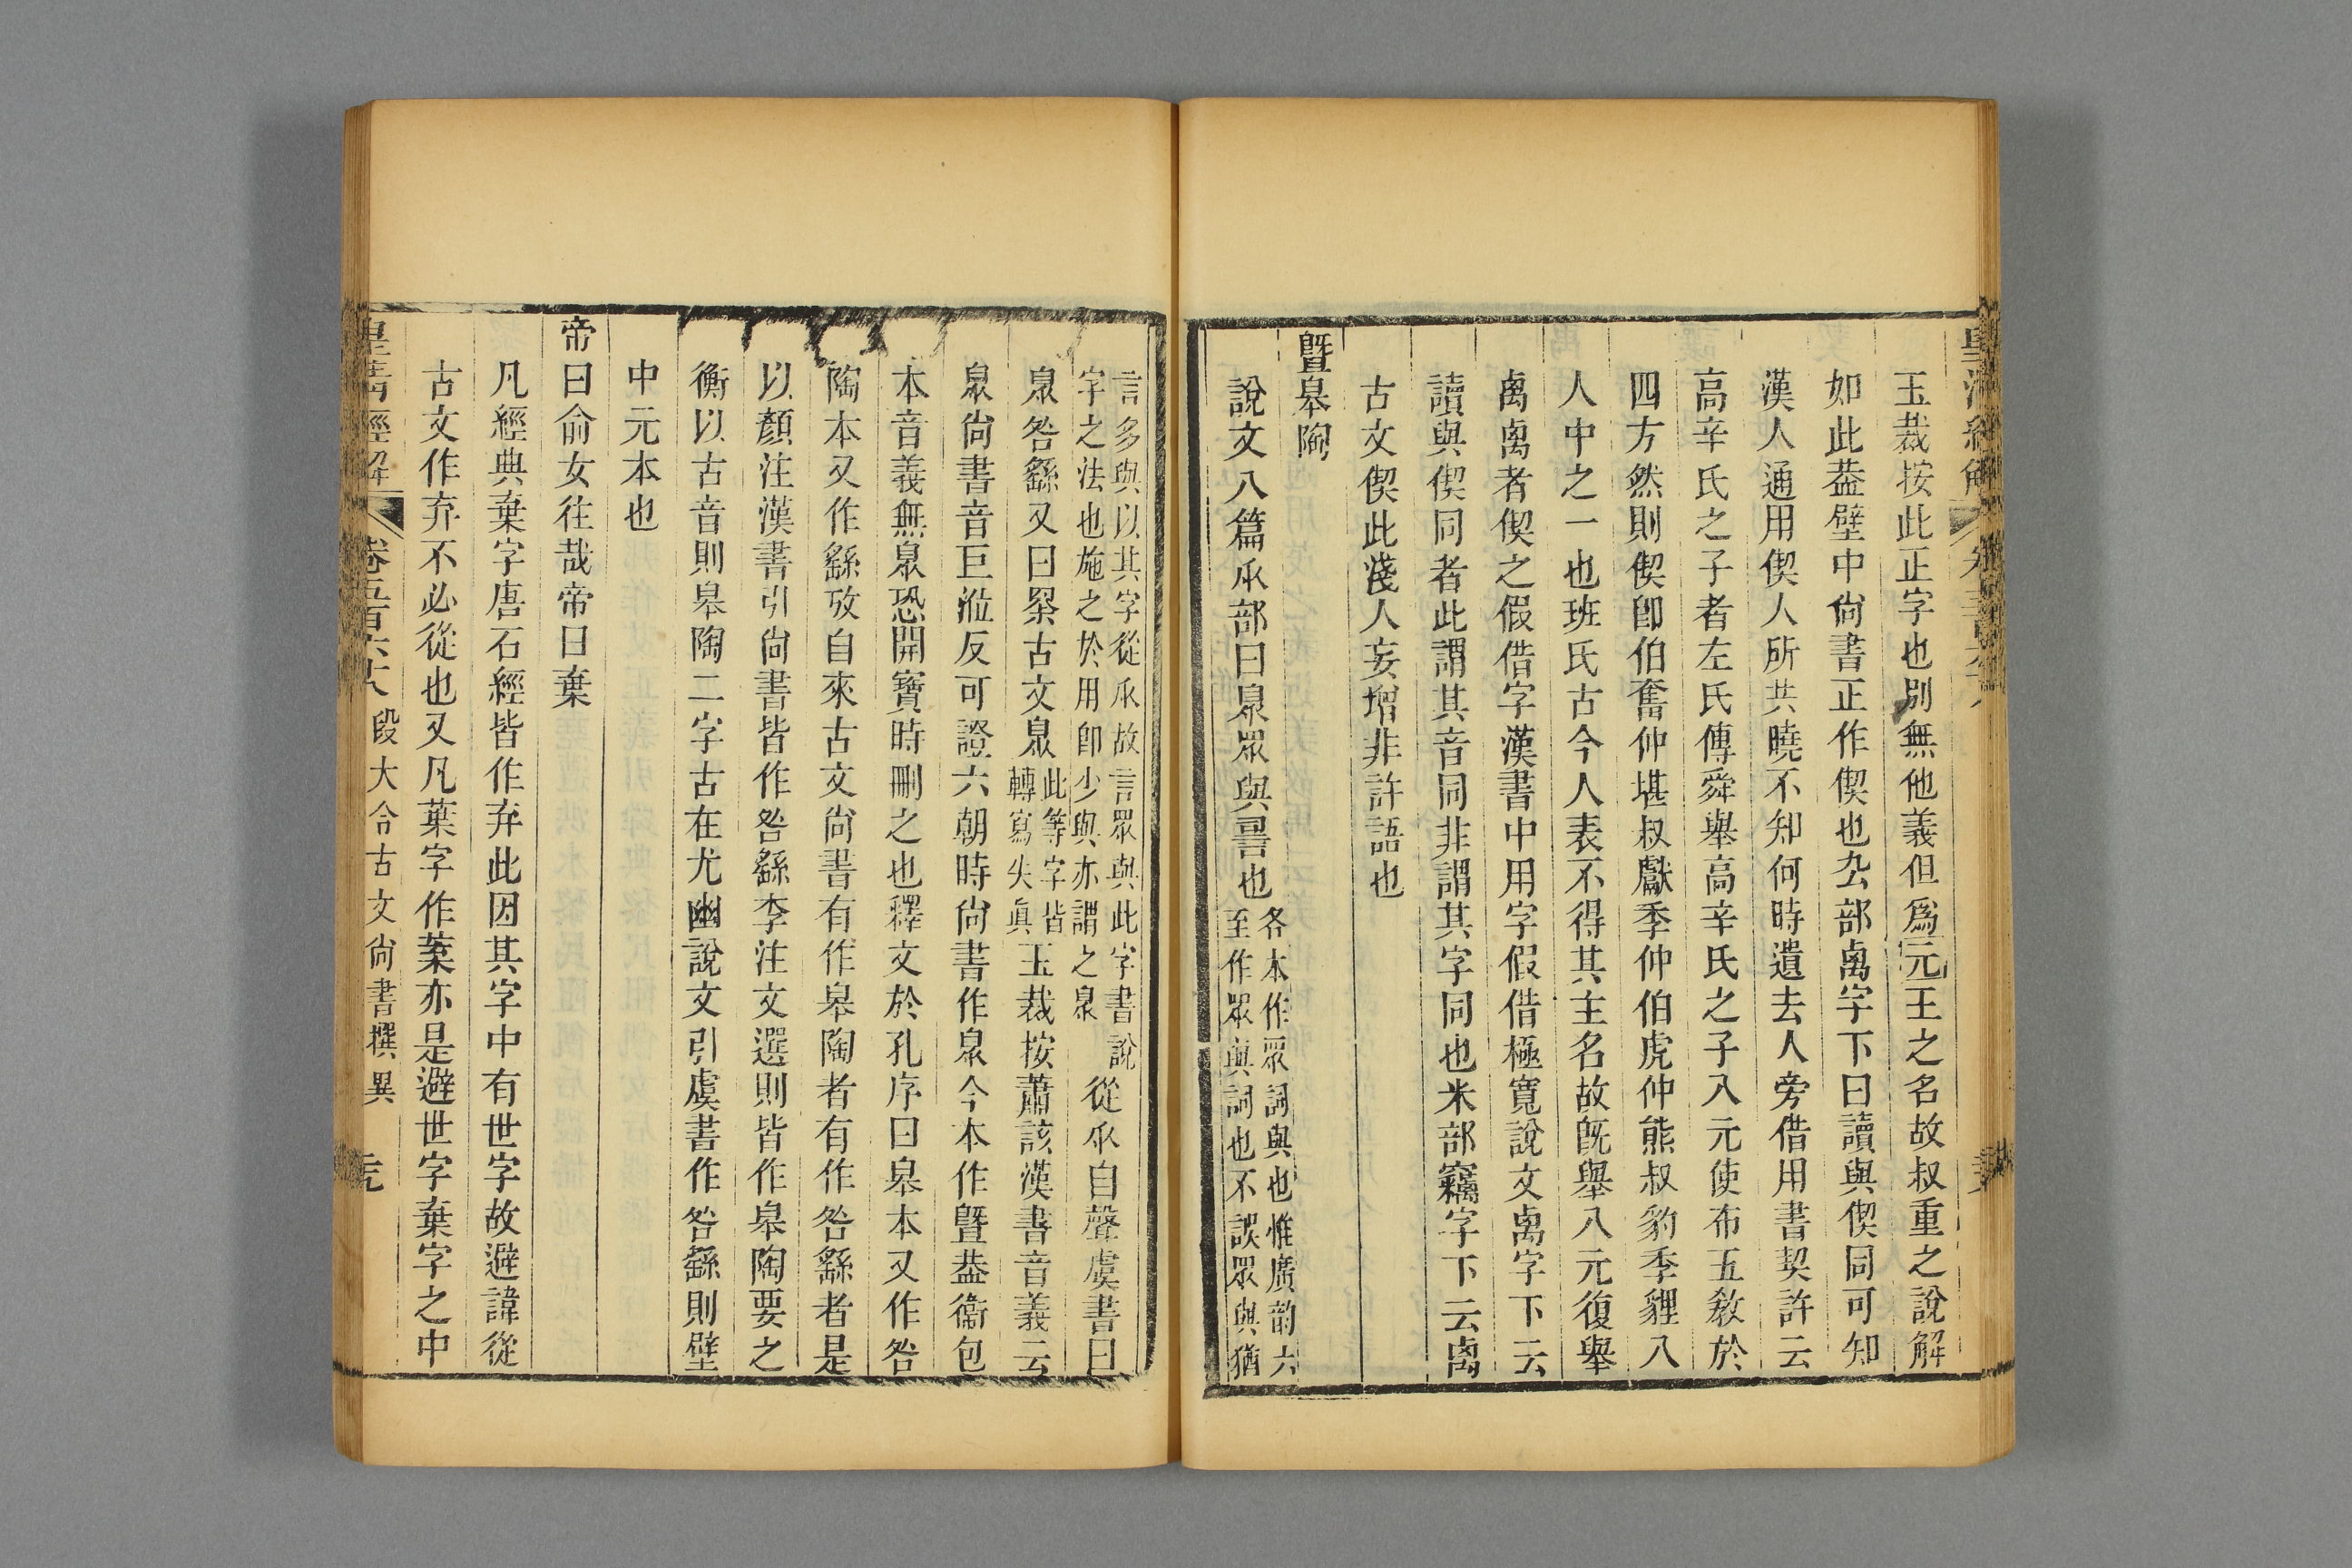 皇清經解
玉裁按此正字也別無他義但爲元王之名故叔重之說解
如此葢壁中尙書正作偰也厹部禼字下曰讀與偰同可知
漢人通用偰人所共曉不知何時遺去人旁借用書契許云
高辛氏之子者左氏傳舜舉高辛氏之子八元使布五敎於
四方然則偰卽伯奮仲堪叔獻季仲伯虎仲熊叔豹季貍八
人中之一也班氏古今人表不得其主名故旣舉八元復舉
禼禼者偰之假借字漢書中用字假借極寬說文禼字下云
讀與偰同者此謂其音同非謂其字同也米部竊字下云禼
古文偰此淺人妄增非許語也
曁皋陶
說文八篇㐺部曰臮眾與詞也
各本作眾詞與也惟廣韵六
至作眾與詞也不誤眾與猶
言多與以其字從㐺故言眾與此字書說
字之法也施之於用卽少與亦謂之臮
從㐺自聲虞書曰
臮咎繇又曰𣊻古文臮
此等字皆
轉寫失眞
玉裁按蕭該漢書音義云
臮尙書音巨涖反可證六朝時尙書作臮今本作曁葢衞包
本音義無臮恐開寶時刪之也釋文於孔序曰皋本又作咎
陶本又作繇攷自來古文尙書有作皋陶者有作咎繇者是
以顏注漢書引尙書皆作咎繇李注文選則皆作皋陶要之
衡以古音則皋陶二字古在尤幽說文引虞書作咎繇則壁
中元本也
帝曰俞女往哉帝曰棄
凡經典棄字唐石經皆作弃此因其字中有世字故避諱從
古文作弃不必從也又凡葉字作𦯧亦是避世字棄字之中
皇清經解
卷五百六十八
段大令古文尙書撰異